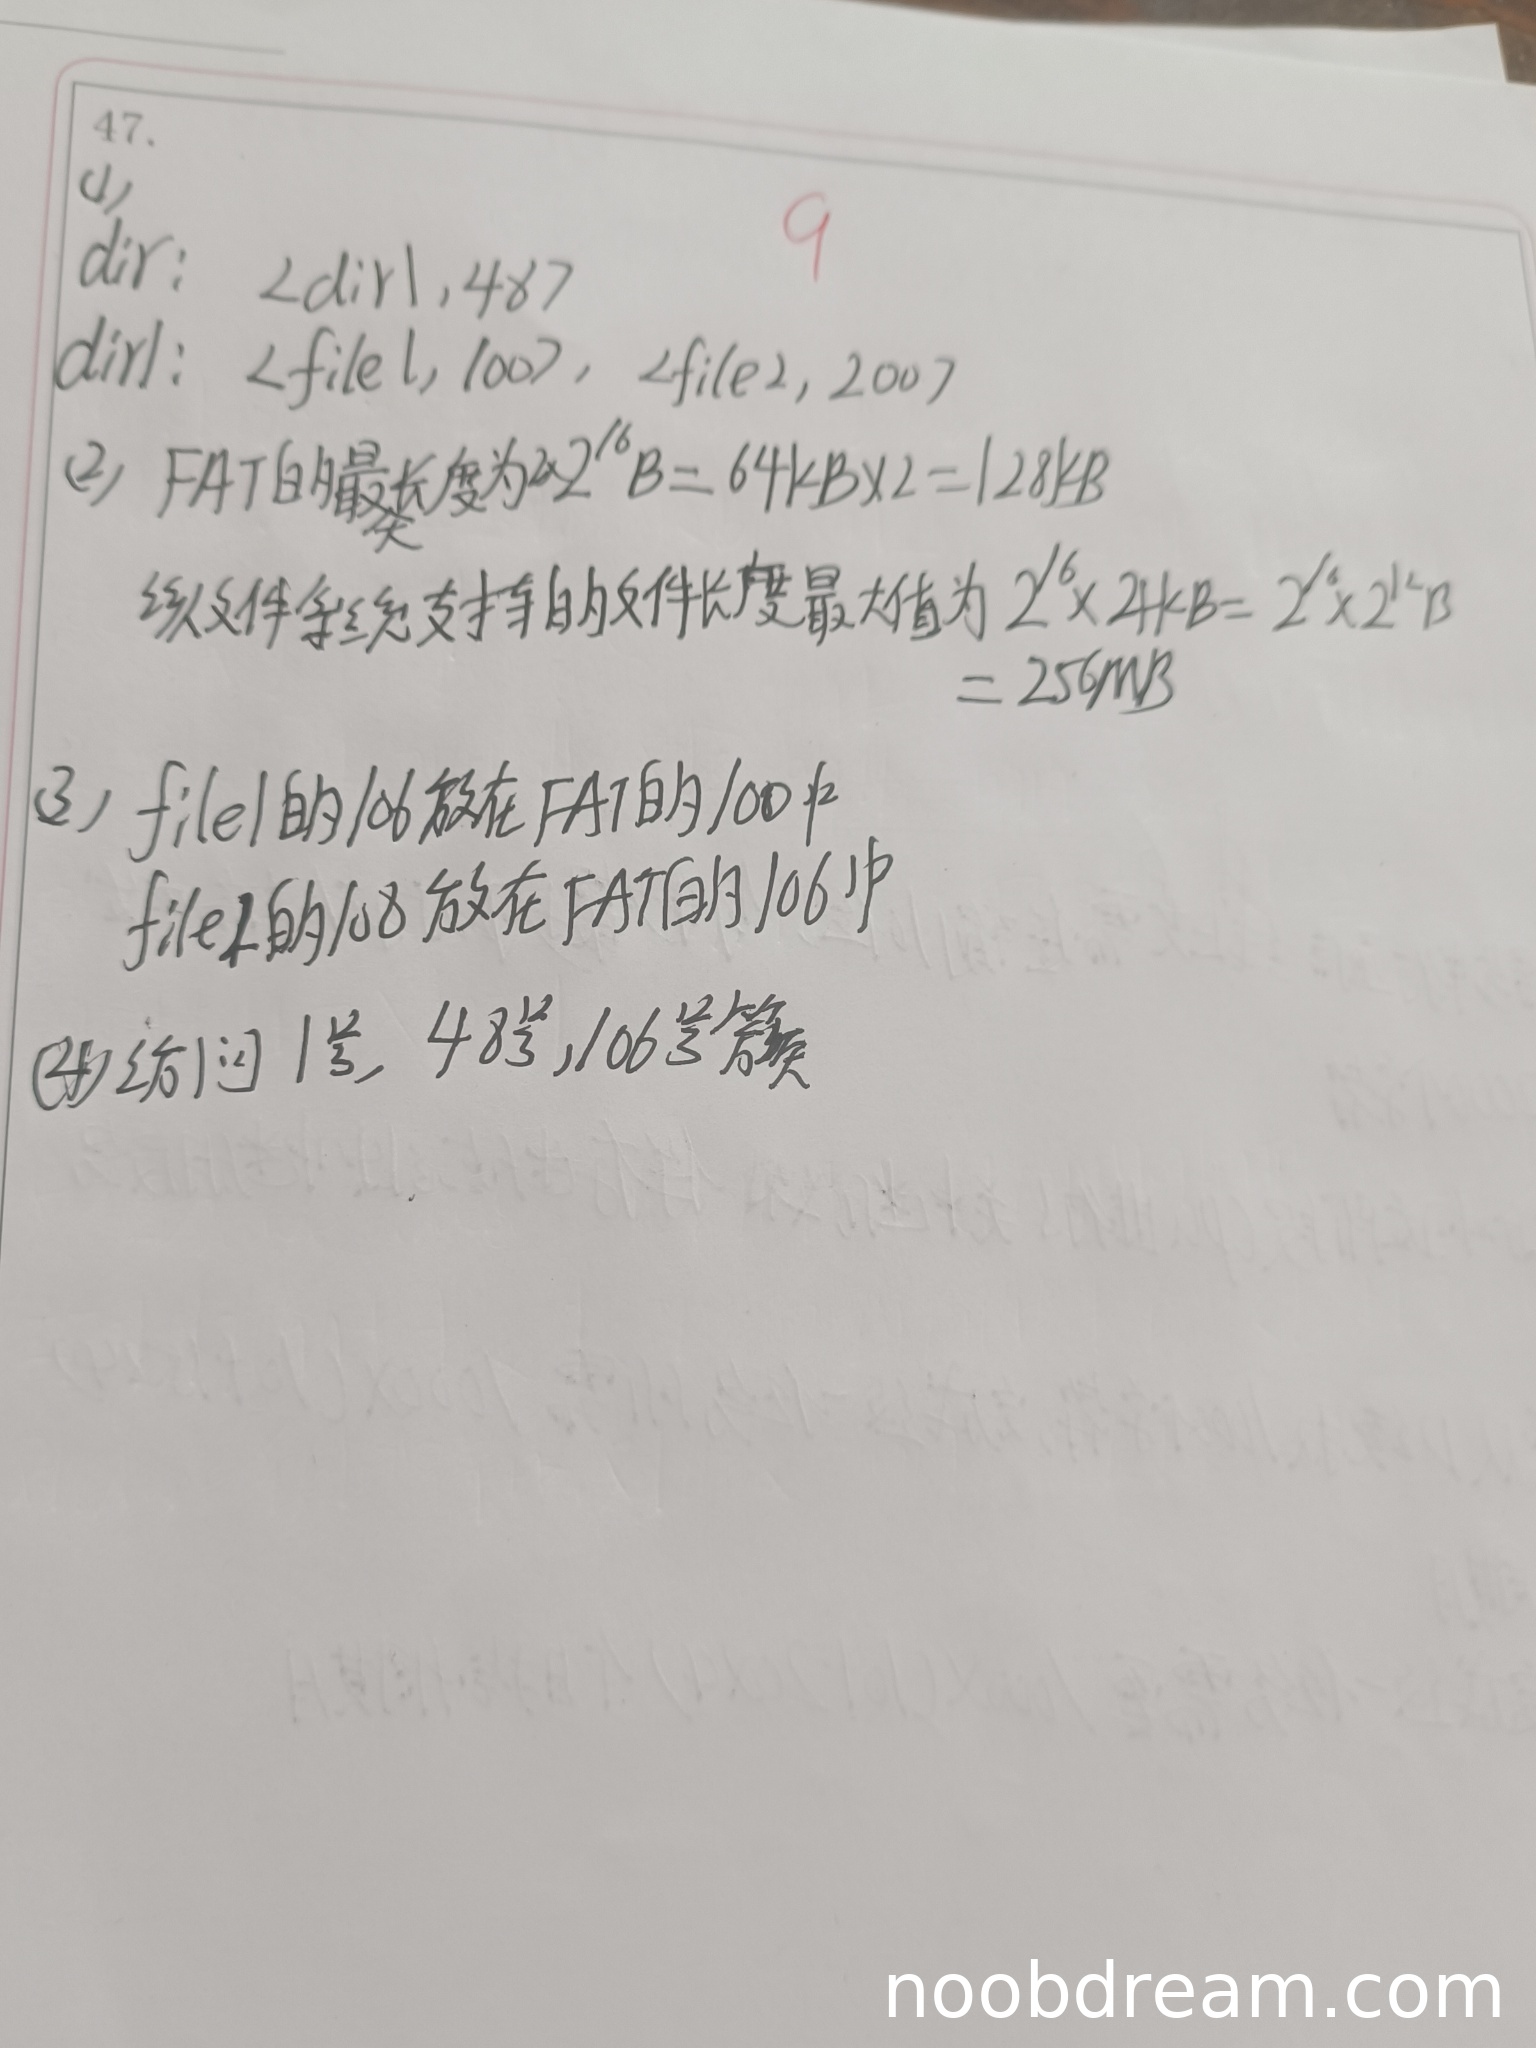 47.
(1)
9
dir: <dir1,48>
dir1: <file1,100>, <file2,200>
(2) FAT的最大长度为2×2^16B=64KB×2=128KB
该文件系统支持的文件长度最大值为2^16×4KB=2^16×2^12B
=256MB
(3) file1的106放在FAT的100中
file2的108放在FAT的106中
(4) 访问1号, 48号,106号簇
noobdream.com